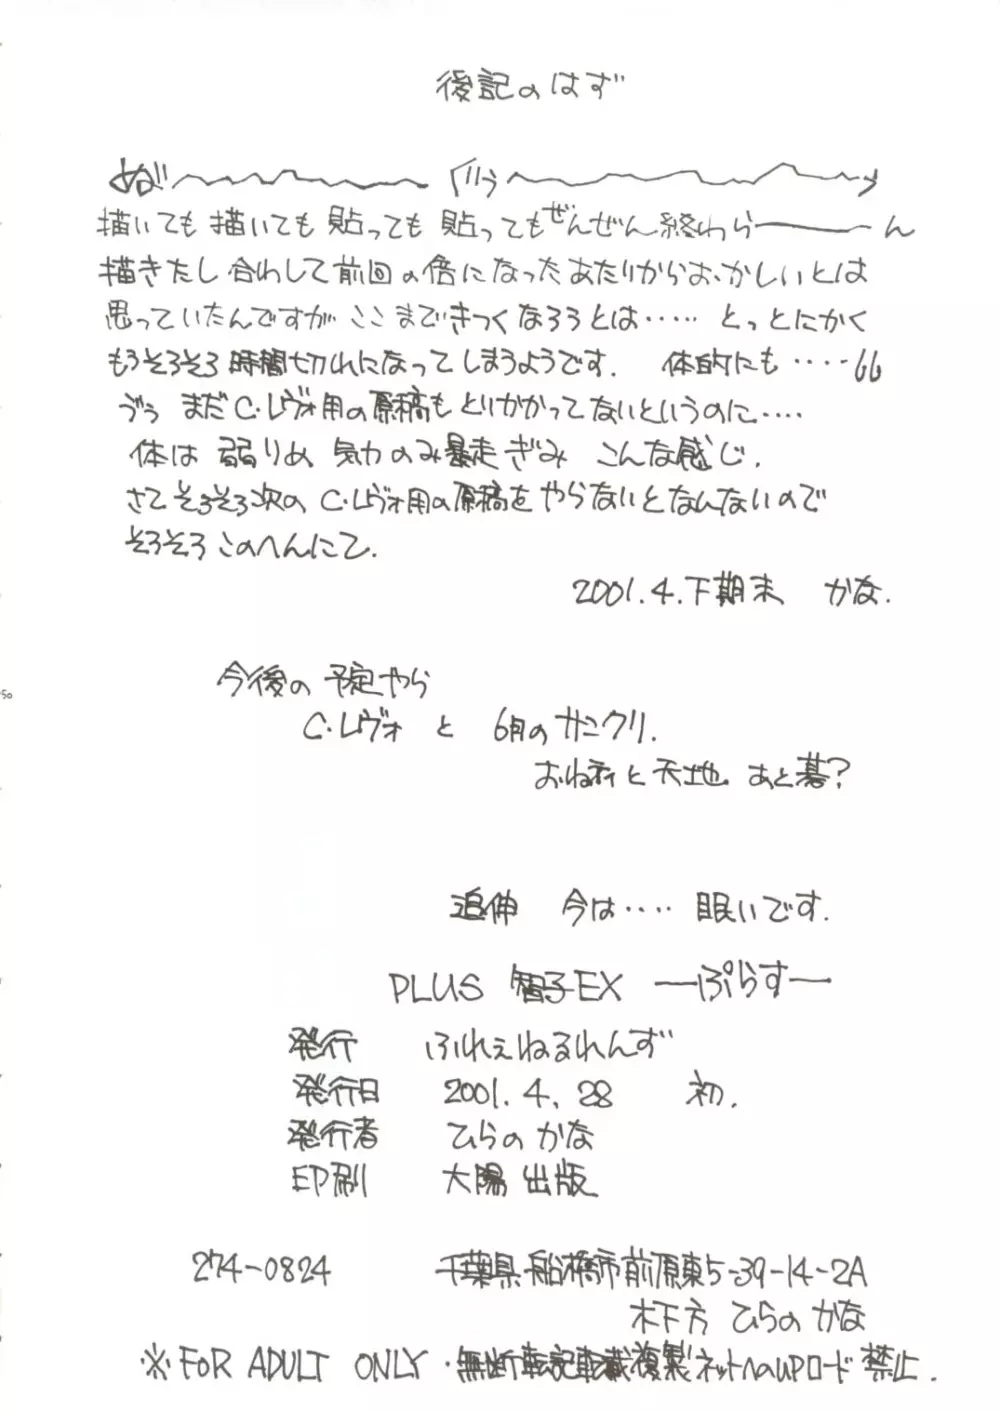 後記のはず
ぬが〜〜〜 ぐぅ〜〜〜っ
描いても描いても貼っても貼ってもぜんぜん終わら―――ん
描きたし合わして前回の倍になったあたりからおかしいとは
思っていたんですがここまできつくなろうとは・・・・・ とっとにかく
もうそろそろ時間切れになってしまうようです. 体的にも・・・・66
ゔぅ まだC.レヴォ用の原稿もとりかかってないというのに・・・・
体は弱りめ 気力のみ暴走ぎみ こんな感じ.
さてそろそろ次のC.レヴォ用の原稿をやらないとなんないので
そろそろこのへんにて.
2001.4.下期末 かな.
今後の予定やら
C.レヴォ と 6月のサンクリ.
おねティと天地 あと碁?
50
追伸 今は・・・・ 眠いです.
PLUS 智子EX ―ぷらす―
発行 ふれぇねるれんず
発行日 2001.4.28 初.
発行者 ひらのかな
印刷 大陽出版
274-0824 千葉県船橋市前原東5-39-14-2A
木下方 ひらの かな
※FOR ADULT ONLY・無断転記転載複製ネットへのUPロード禁止.